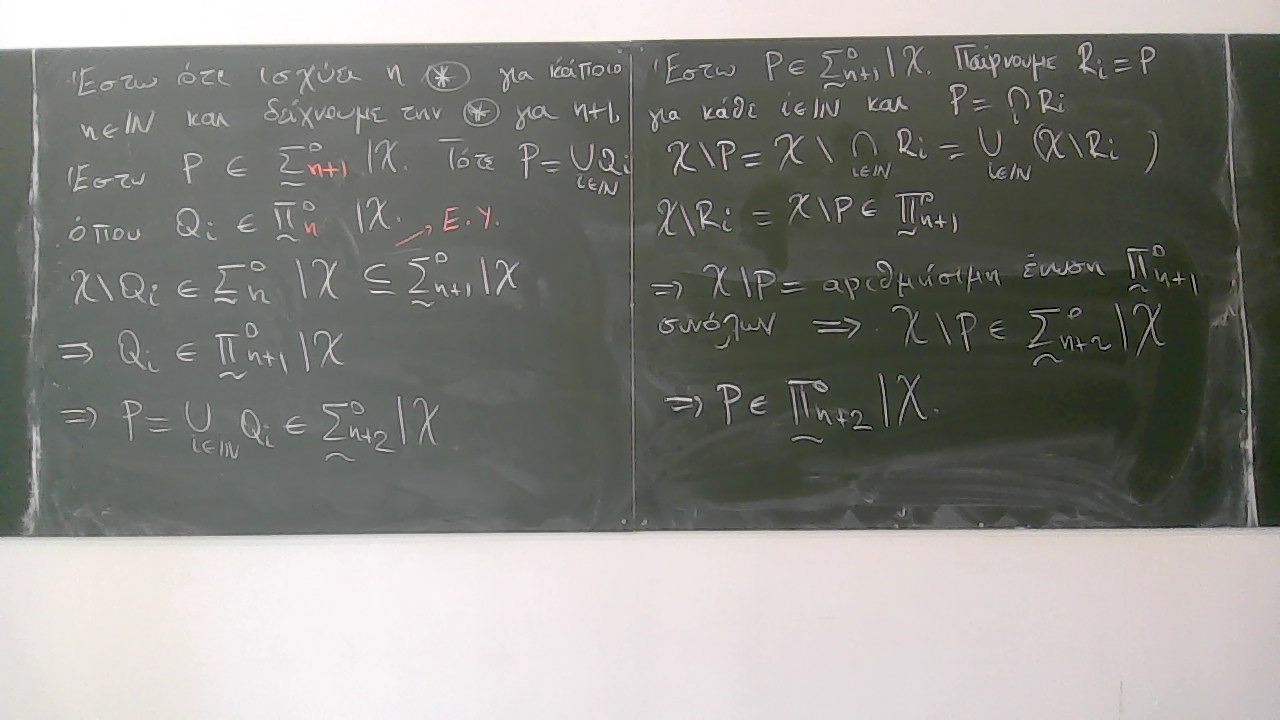 Έστω ότι ισχύει η ⊛ για κάποιο
n∈ℕ και δείχνουμε την ⊛ για n+1.
Έστω P ∈ Σ̰⁰ₙ₊₁ |𝒳. Τότε P = ∪_{i∈ℕ} Qᵢ
όπου Qᵢ ∈ Π̰⁰ₙ |𝒳.
Ε.Υ.
𝒳\Qᵢ ∈ Σ̰⁰ₙ |𝒳 ⊆ Σ̰⁰ₙ₊₁ |𝒳
⇒ Qᵢ ∈ Π̰⁰ₙ₊₁ |𝒳
⇒ P = ∪_{i∈ℕ} Qᵢ ∈ Σ̰⁰ₙ₊₂ |𝒳
Έστω P ∈ Σ̰⁰ₙ₊₁ |𝒳. Παίρνουμε Rᵢ = P
για κάθε i∈ℕ και P = ∩ᵢ Rᵢ
𝒳\P = 𝒳 \ ∩_{i∈ℕ} Rᵢ = ∪_{i∈ℕ} (𝒳\Rᵢ)
𝒳\Rᵢ = 𝒳\P ∈ Π̰⁰ₙ₊₁
⇒ 𝒳\P = αριθμήσιμη ένωση Π̰⁰ₙ₊₁
συνόλων ⇒ 𝒳\P ∈ Σ̰⁰ₙ₊₂ |𝒳
⇒ P ∈ Π̰⁰ₙ₊₂ |𝒳.